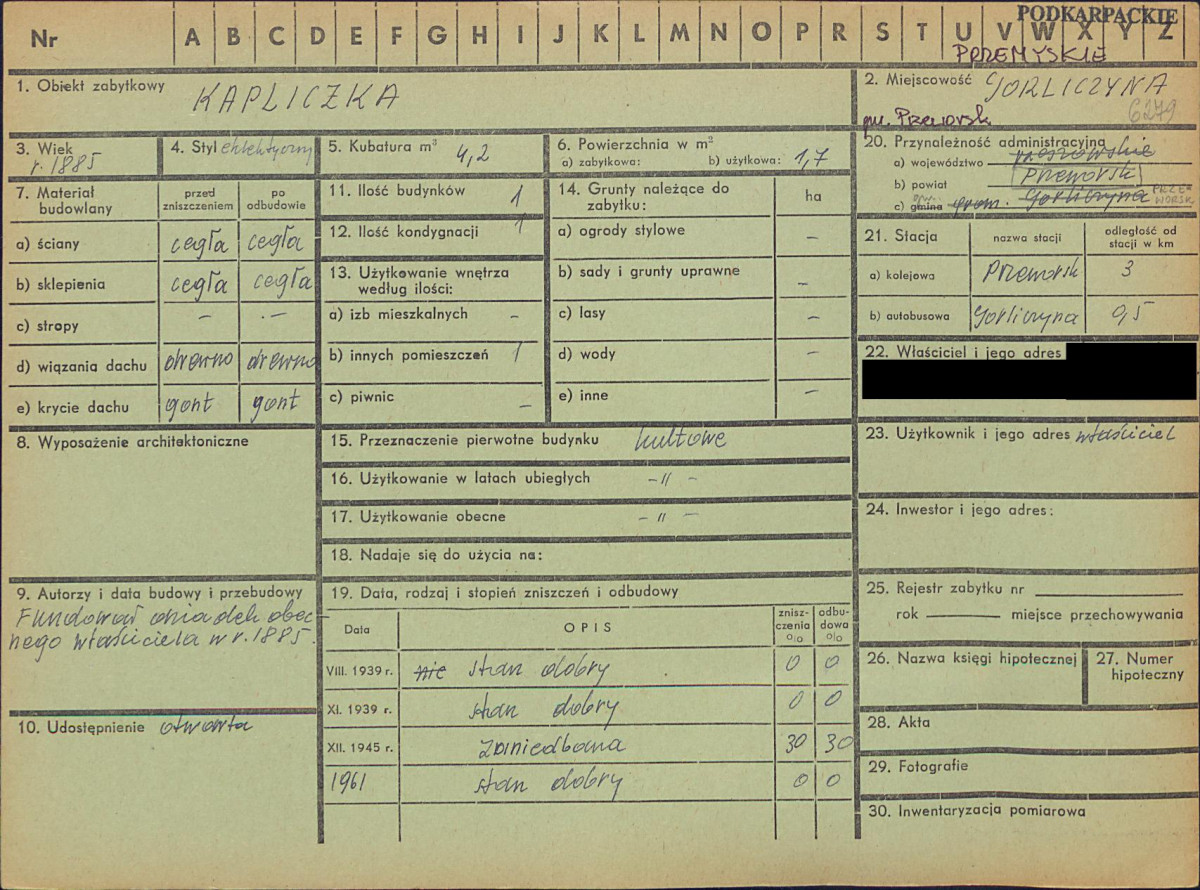 PODKARPACKIE
Nr A B C D E F G H I J K L M N O P R S T U V W X Y Z
PRZEMYSKIE
1. Obiekt zabytkowy KAPLICZKA
2. Miejscowość GORLICZYNA
gm. Przeworsk 6279
3. Wiek
r. 1885
4. Styl eklektyczny
5. Kubatura m³ 4,2
6. Powierzchnia w m²
a) zabytkowa: b) użytkowa: 1,7
20. Przynależność administracyjna
a) województwo rzeszowskie
b) powiat Przeworsk
c) gmina grom. Gorliczyna PRZEWORSK
7. Materiał budowlany
przed zniszczeniem
po odbudowie
a) ściany cegła cegła
b) sklepienia cegła cegła
c) stropy – –
d) wiązania dachu drewno drewno
e) krycie dachu gont gont
11. Ilość budynków 1
12. Ilość kondygnacji 1
13. Użytkowanie wnętrza
według ilości:
a) izb mieszkalnych –
b) innych pomieszczeń 1
c) piwnic –
14. Grunty należące do
zabytku:
ha
a) ogrody stylowe –
b) sady i grunty uprawne –
c) lasy –
d) wody –
e) inne –
21. Stacja
nazwa stacji
odległość od
stacji w km
a) kolejowa Przeworsk 3
b) autobusowa Gorliczyna 0,5
22. Właściciel i jego adres
8. Wyposażenie architektoniczne
15. Przeznaczenie pierwotne budynku kultowe
16. Użytkowanie w latach ubiegłych – " –
17. Użytkowanie obecne – " –
18. Nadaje się do użycia na:
23. Użytkownik i jego adres właściciel
24. Inwestor i jego adres:
9. Autorzy i data budowy i przebudowy
Fundował dziadek obec-
nego właściciela w r. 1885.
10. Udostępnienie otwarta
19. Data, rodzaj i stopień zniszczeń i odbudowy
Data OPIS
znisz-
czenia
o|o
odbu-
dowa
o|o
VIII. 1939 r. nie stan dobry 0 0
XI. 1939 r. stan dobry 0 0
XII. 1945 r. zaniedbana 30 30
1961 stan dobry 0 0
25. Rejestr zabytku nr
rok miejsce przechowywania
26. Nazwa księgi hipotecznej
27. Numer
hipoteczny
28. Akta
29. Fotografie
30. Inwentaryzacja pomiarowa